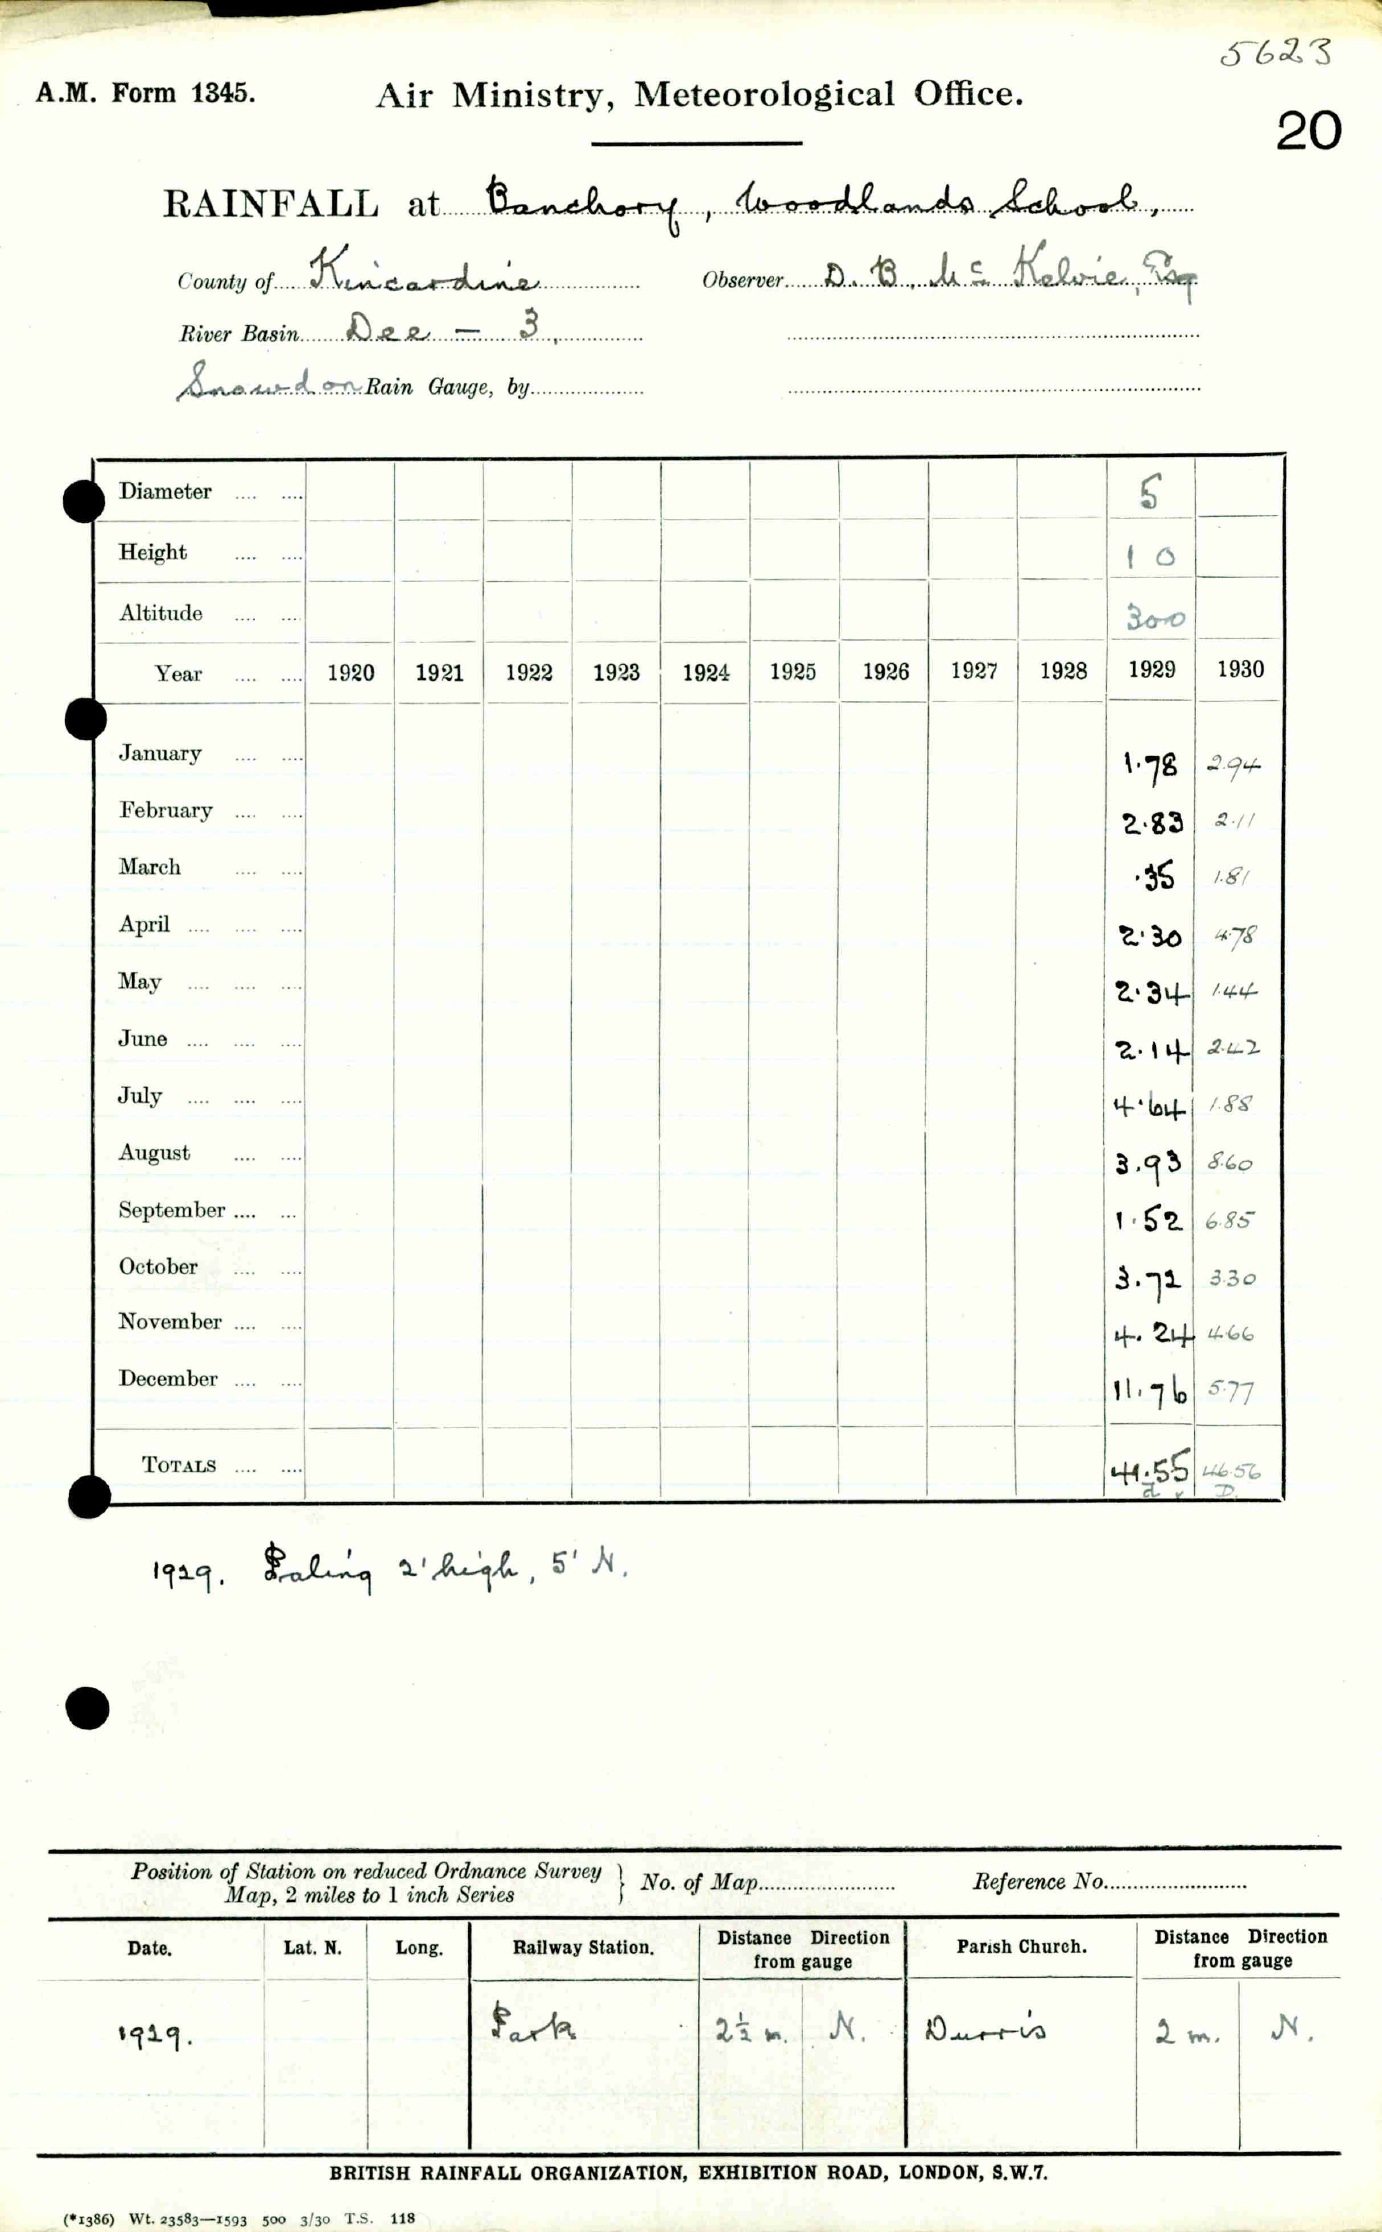 5623
A.M. Form 1345. Air Ministry, Meteorological Office.
20
RAINFALL at Banchory, Woodlands School,
County of Kincardine Observer D. B. Mc Kelvie, Esq
River Basin Dee - 3,
Snowdon Rain Gauge, by
Diameter 5
Height 1 0
Altitude 300
Year 1920 1921 1922 1923 1924 1925 1926 1927 1928 1929 1930
January 1.78 2.94
February 2.83 2.11
March .35 1.81
April 2.30 4.78
May 2.34 1.44
June 2.14 2.42
July 4.64 1.88
August 3.93 8.60
September 1.52 6.85
October 3.72 3.30
November 4.24 4.66
December 11.76 5.77
TOTALS 41.55 46.56
d x D.
1929. Paling 2' high, 5' N.
Position of Station on reduced Ordnance Survey } No. of Map Reference No.
Map, 2 miles to 1 inch Series
Date. Lat. N. Long. Railway Station. Distance Direction from gauge Parish Church. Distance Direction from gauge
1929. Park 2½ m. N. Durris 2 m. N.
BRITISH RAINFALL ORGANIZATION, EXHIBITION ROAD, LONDON, S.W.7.
(*1386) Wt. 23583—1593 500 3/30 T.S. 118